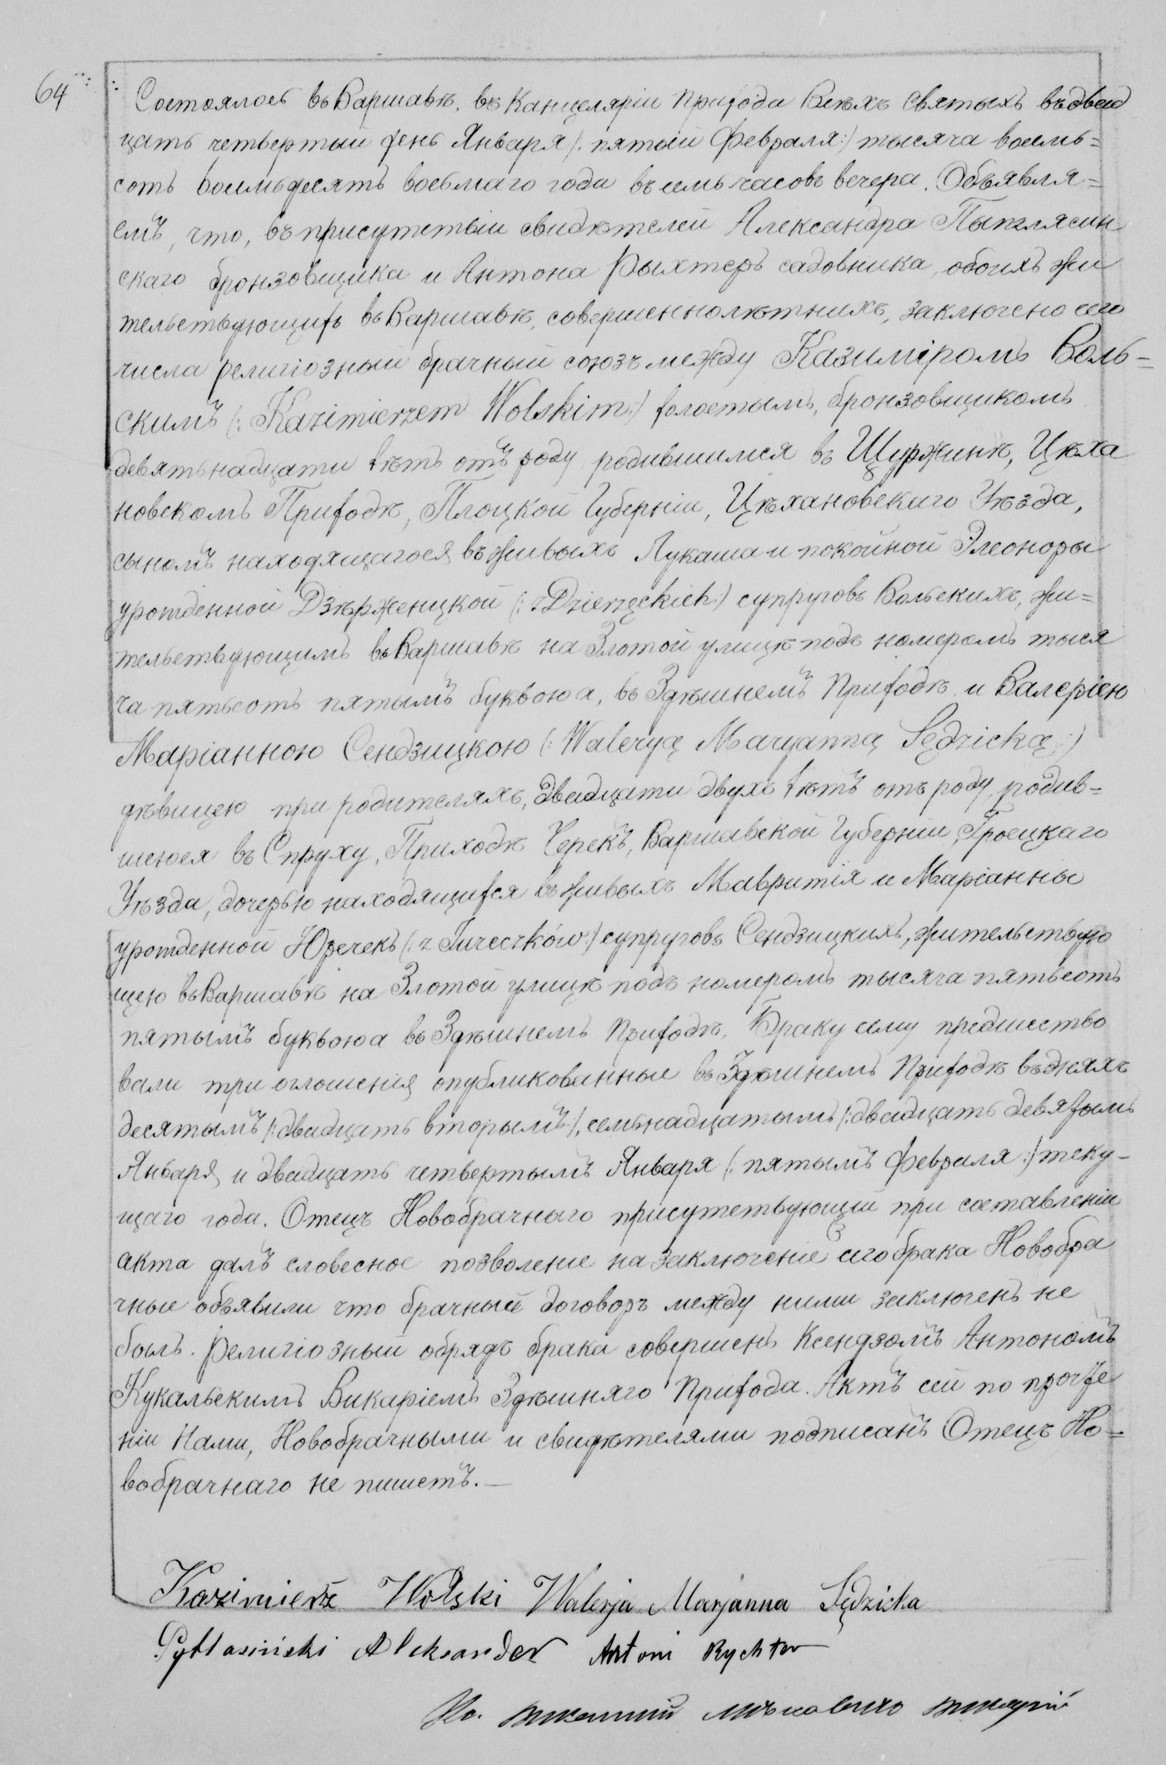 64
Состоялось въ Варшавѣ, въ Канцеляріи Прихода Всѣхъ Святыхъ въ двад
цать четвертый день Января /: пятый Февраля :/ тысяча восемь=
сотъ восемьдесятъ восьмаго года въ семь часовъ вечера. Объявля=
емъ, что, въ присутствіи свидѣтелей Александра Пытлясин
скаго бронзовщика и Антона Рыхтеръ садовника, обоихъ жи
тельствующихъ въ Варшавѣ, совершеннолѣтнихъ, заключено сего
числа религіозный брачный союзъ между Казиміромъ Воль=
скимъ (: Kazimierzem Wolskim :) холостымъ, бронзовщикомъ
девятьнадцати лѣтъ отъ роду родившимся въ Щуржинѣ, Цѣха
новскомъ Приходѣ, Плоцкой Губерніи, Цѣхановскаго Уѣзда,
сыномъ находящагося въ живыхъ Лукаша и покойной Элеоноры
урожденной Дзѣрженцкой (: z Dzierzęckich :) супруговъ Вольскихъ, жи=
тельствующимъ въ Варшавѣ на Злотой улицѣ подъ номеромъ тыся
ча пятьсотъ пятымъ буквою а, въ Здѣшнемъ Приходѣ, и Валеріею
Маріанною Сендзицкою (: Waleryą Maryanną Sędzicką :)
дѣвицею при родителяхъ, двадцати двухъ лѣтъ отъ роду родив=
шеюся въ Спруху, Приходѣ Черскъ, Варшавской Губерніи, Гроецкаго
Уѣзда, дочерью находящихся въ живыхъ Мавритія и Маріанны
урожденной Юзечекъ (: z Jureczków :) супруговъ Сендзицкихъ, жительствую
щею въ Варшавѣ на Злотой улицѣ подъ номеромъ тысяча пятьсотъ
пятымъ буквою а въ Здѣшнемъ Приходѣ. Браку сему предшество
вали три оглашенія опубликованные въ Здѣшнемъ Приходѣ въ дняхъ
десятымъ /: двадцать вторымъ :/, семьнадцатымъ /: двадцать девятымъ
Января, и двадцать четвертымъ Января (: пятымъ Февраля :) теку-
щаго года. Отецъ Новобрачнаго присутствующій при составленіи
акта далъ словесное позволеніе на заключеніе сего брака Новобра
чные объявили что брачный договоръ между ними заключенъ не
былъ. Религіозный обрядъ брака совершенъ Ксендзомъ Антономъ
Кукальскимъ Викаріемъ Здѣшняго Прихода. Актъ сей по прочте
ніи Нами, Новобрачными и свидѣтелями подписанъ Отецъ Но=
вобрачнаго не пишетъ.—
Kazimierz Wolski Walerja Marjanna Sędzicka
Pytlasiński Aleksander Antoni Rychter